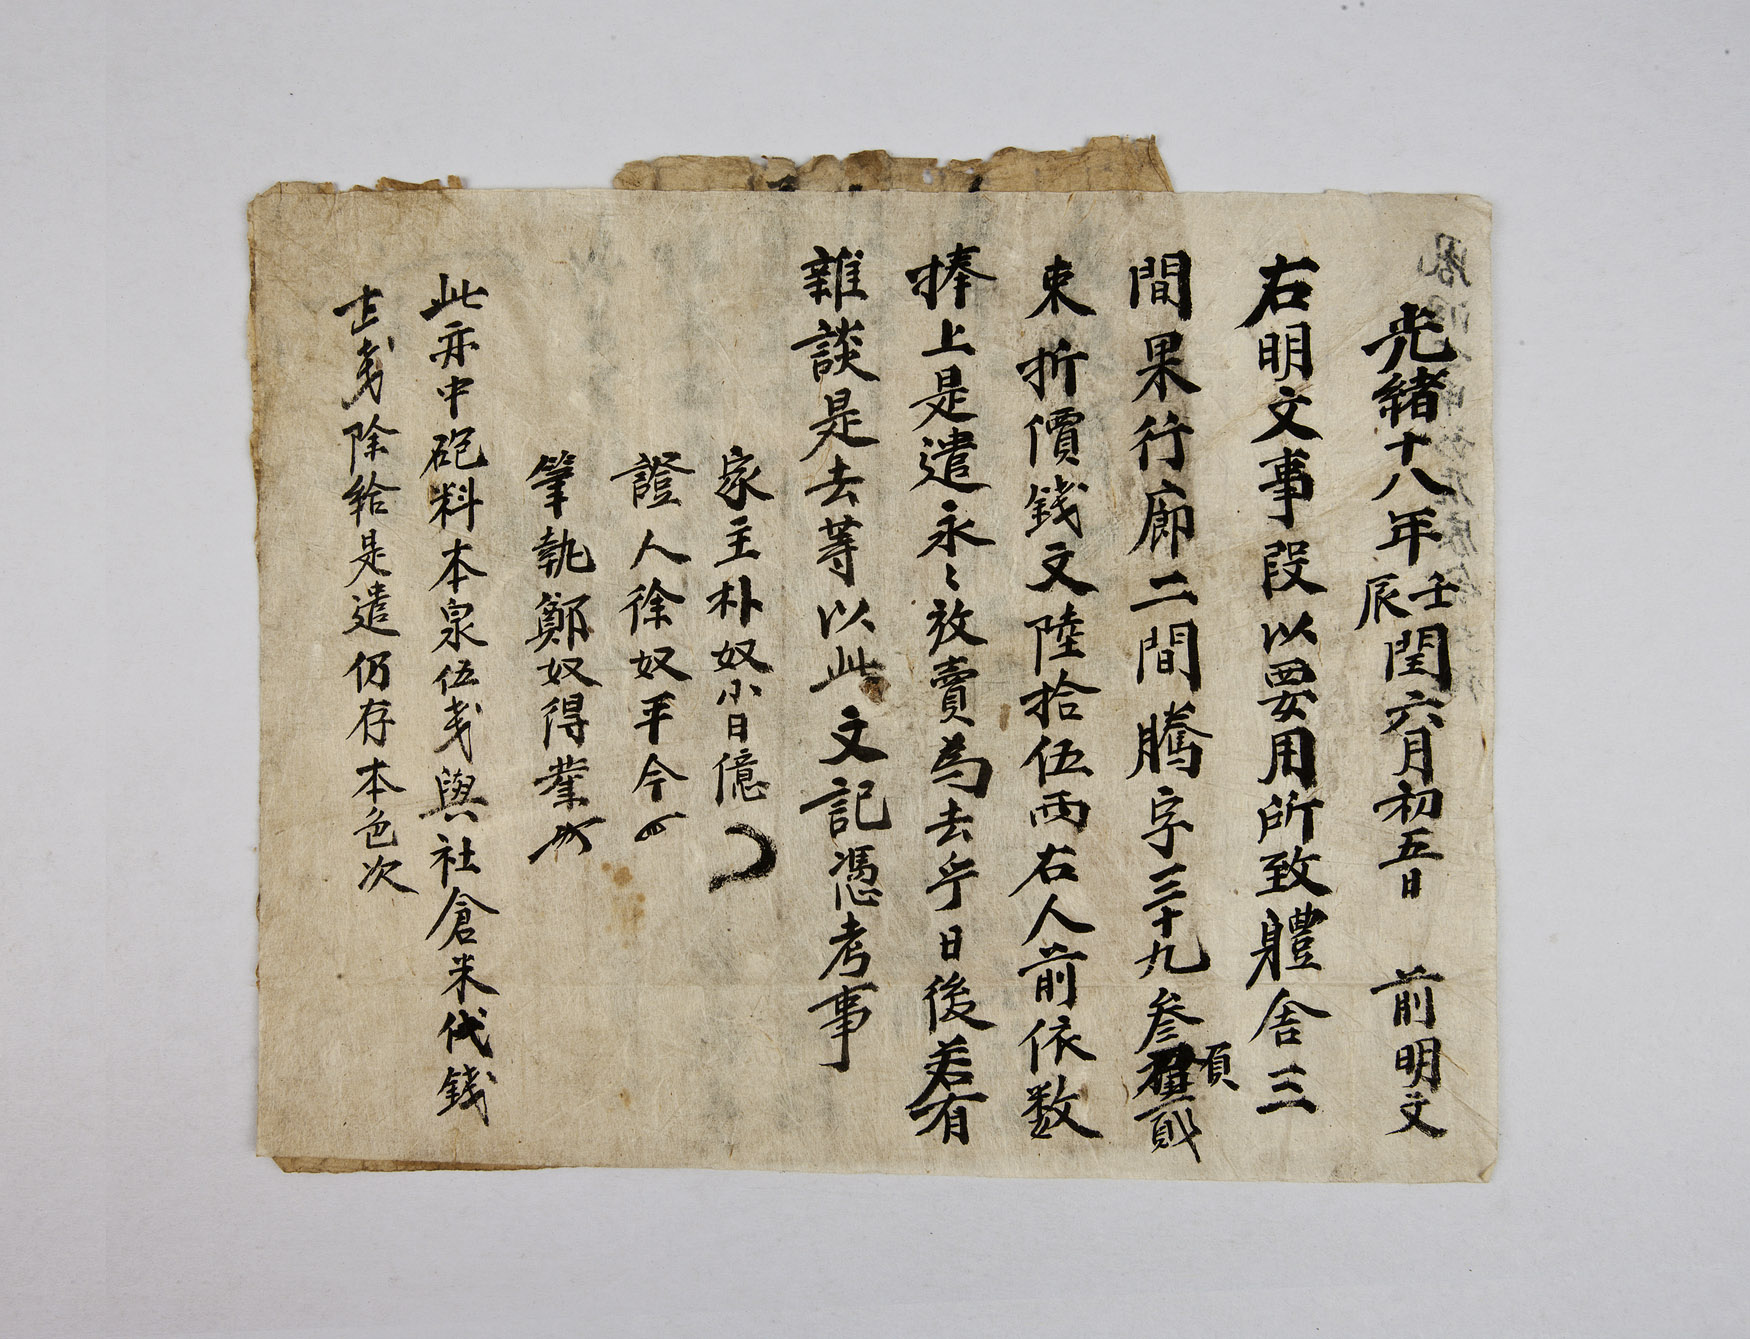 光緖十八年壬辰閏六月初五日 前明文
右明文事段以要用所致軆舍三
間果行廊二間騰字三十九叅頃貳
束折價錢文陸拾伍兩右人前依数
捧上是遣永〻放賣爲去乎日後若有
雜談是去等以此文記憑考事
家主朴奴小日億
證人徐奴平今
筆執鄭奴得業
此亦中砲料本泉伍戔與社倉米代錢
戔除給是遣仍存本色次